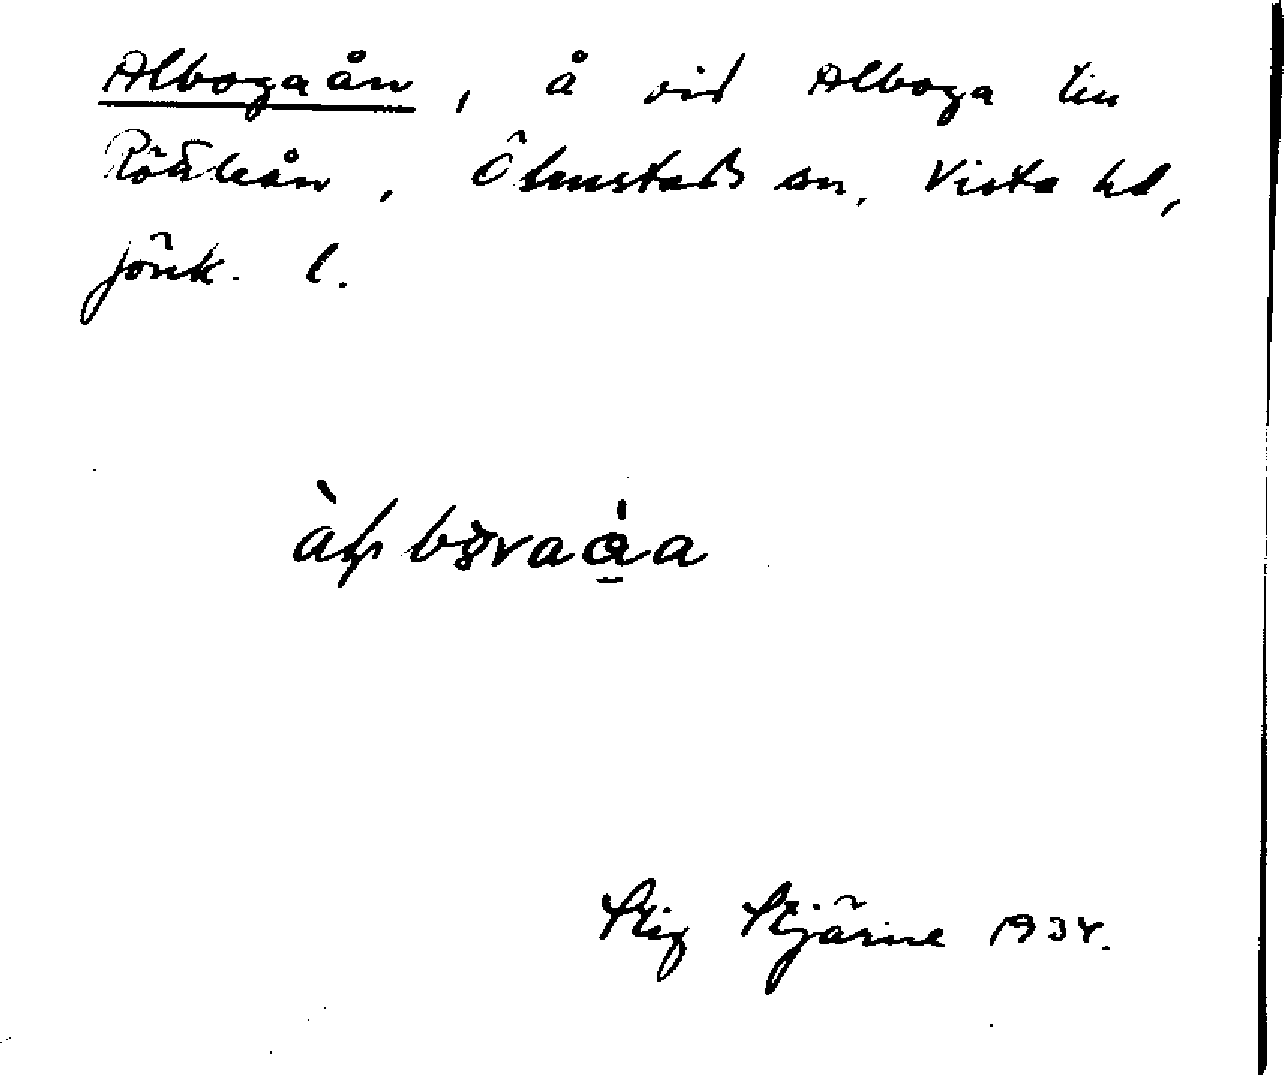 Albogaån, å vid Alboga till
Röålaån, Ölmstads sn, Vista hd,
Jönk. l.
Stig Stjärne 1934.